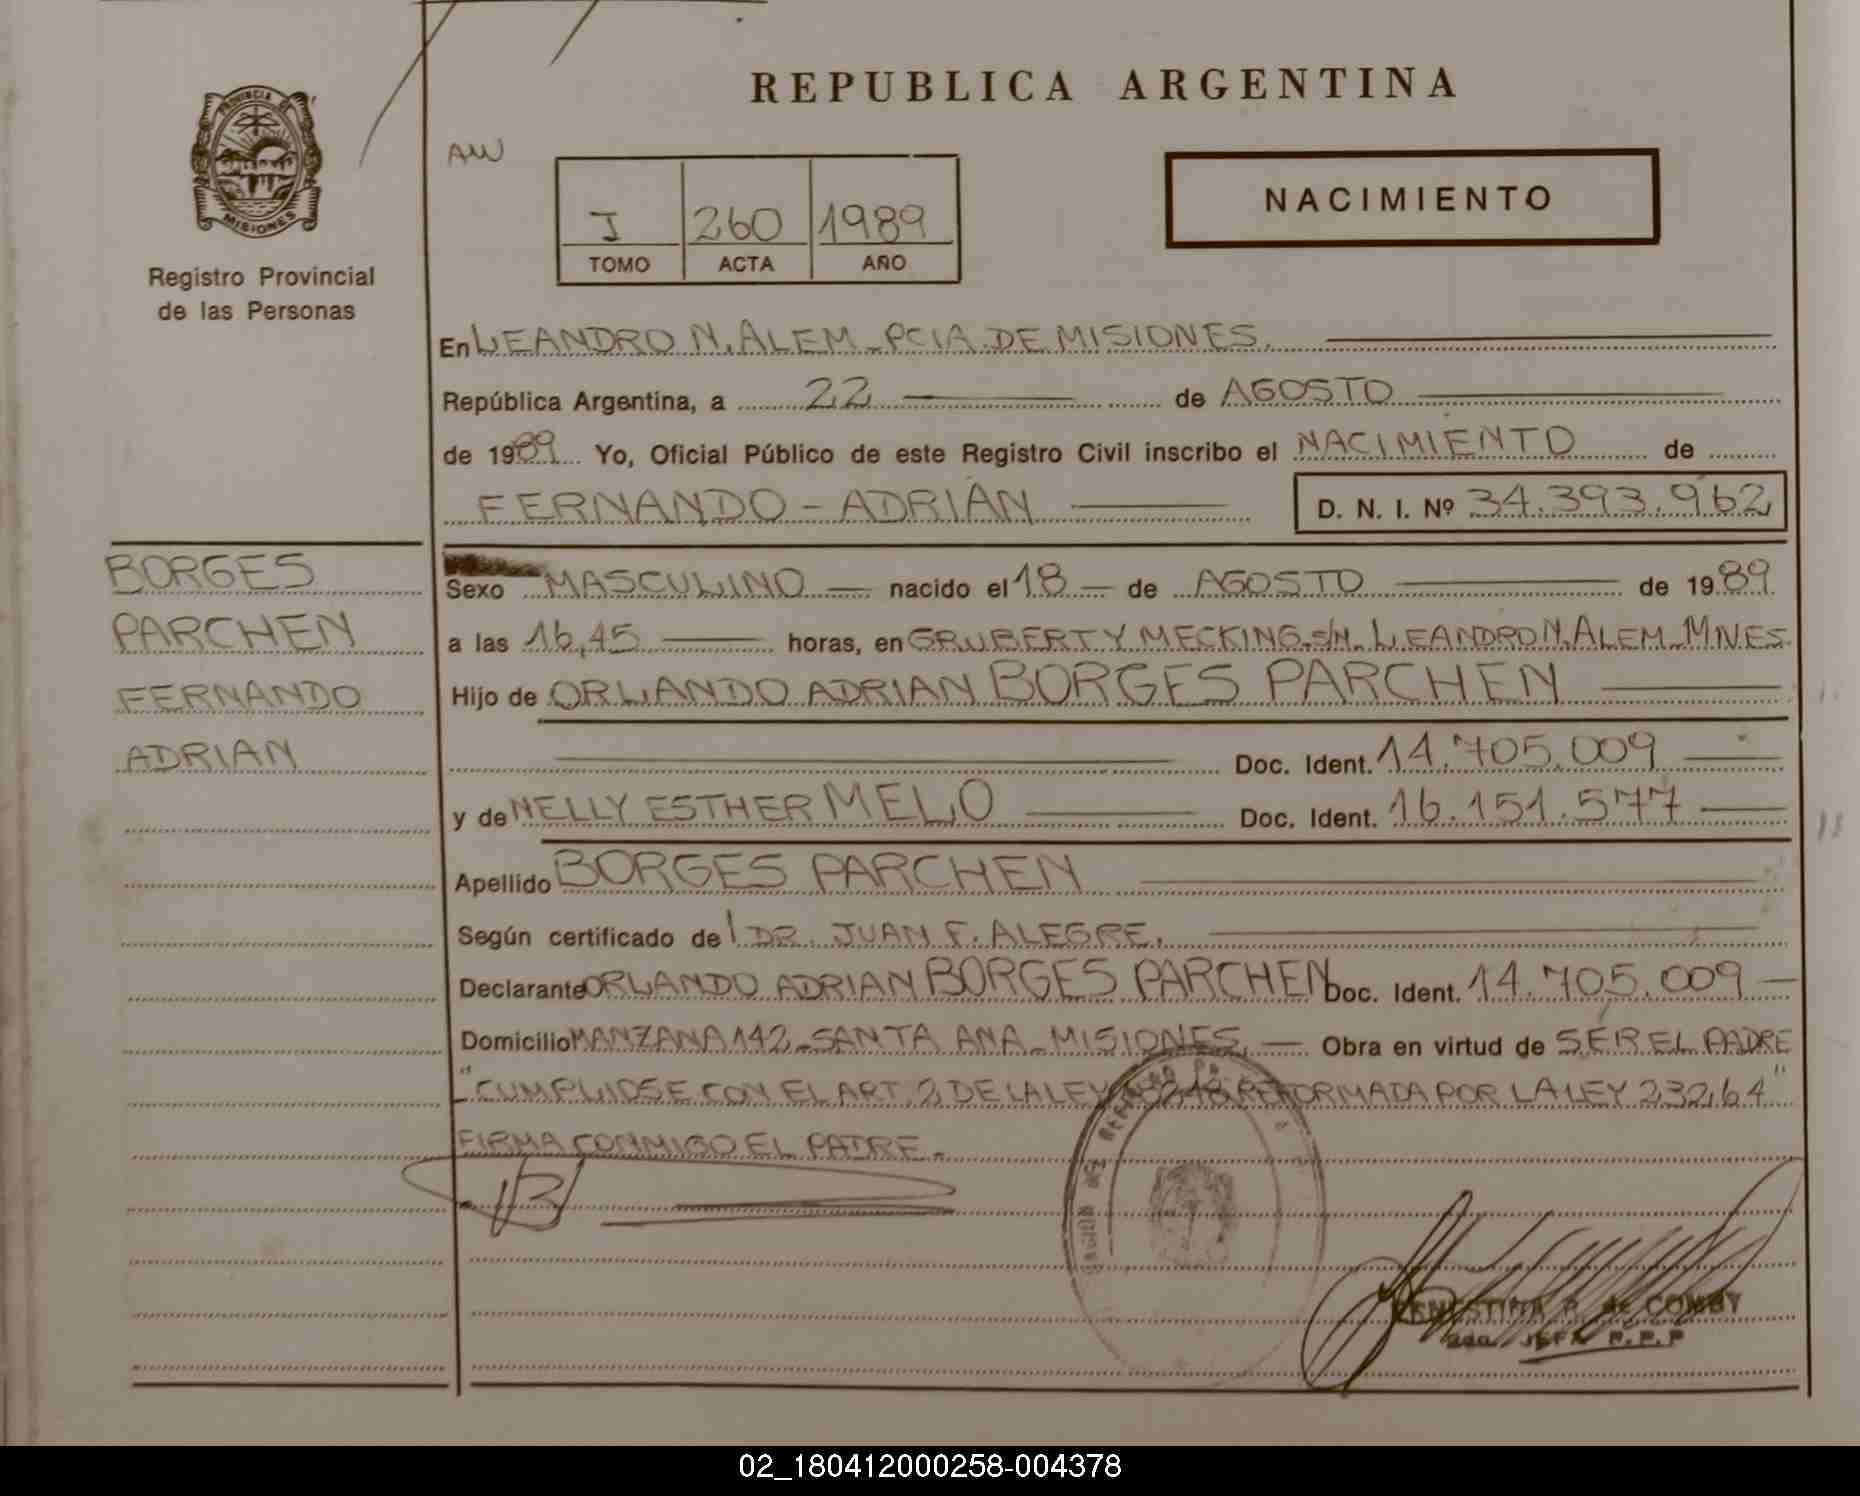 REPUBLICA ARGENTINA
PROVINCIA DE
MISIONES
Registro Provincial
de las Personas
AW
I 260 1989
TOMO ACTA AÑO
NACIMIENTO
En LEANDRO N. ALEM - PCIA. DE MISIONES.
República Argentina, a 22 de AGOSTO
de 1989 Yo, Oficial Público de este Registro Civil inscribo el NACIMIENTO de
FERNANDO - ADRIAN
D. N. I. Nº 34.393.962
BORGES
PARCHEN
FERNANDO
ADRIAN
Sexo MASCULINO nacido el 18 de AGOSTO de 1989
a las 16,45 horas, en GRUBERT Y MECKING S/N. LEANDRO N. ALEM - MNES.
Hijo de ORLANDO ADRIAN BORGES PARCHEN
Doc. Ident. 14.705.009
y de NELLY ESTHER MELO Doc. Ident. 16.151.577
Apellido BORGES PARCHEN
Según certificado del DR. JUAN F. ALEGRE.
Declarante ORLANDO ADRIAN BORGES PARCHEN Doc. Ident. 14.705.009
Domicilio MANZANA 142 - SANTA ANA - MISIONES. Obra en virtud de SER EL PADRE
"CUMPLIOSE CON EL ART. 2, DE LA LEY REFORMADA POR LA LEY 23264"
FIRMA CONMIGO EL PADRE.
P. de COMBY
2da. JEFA R.P.P
02_180412000258-004378